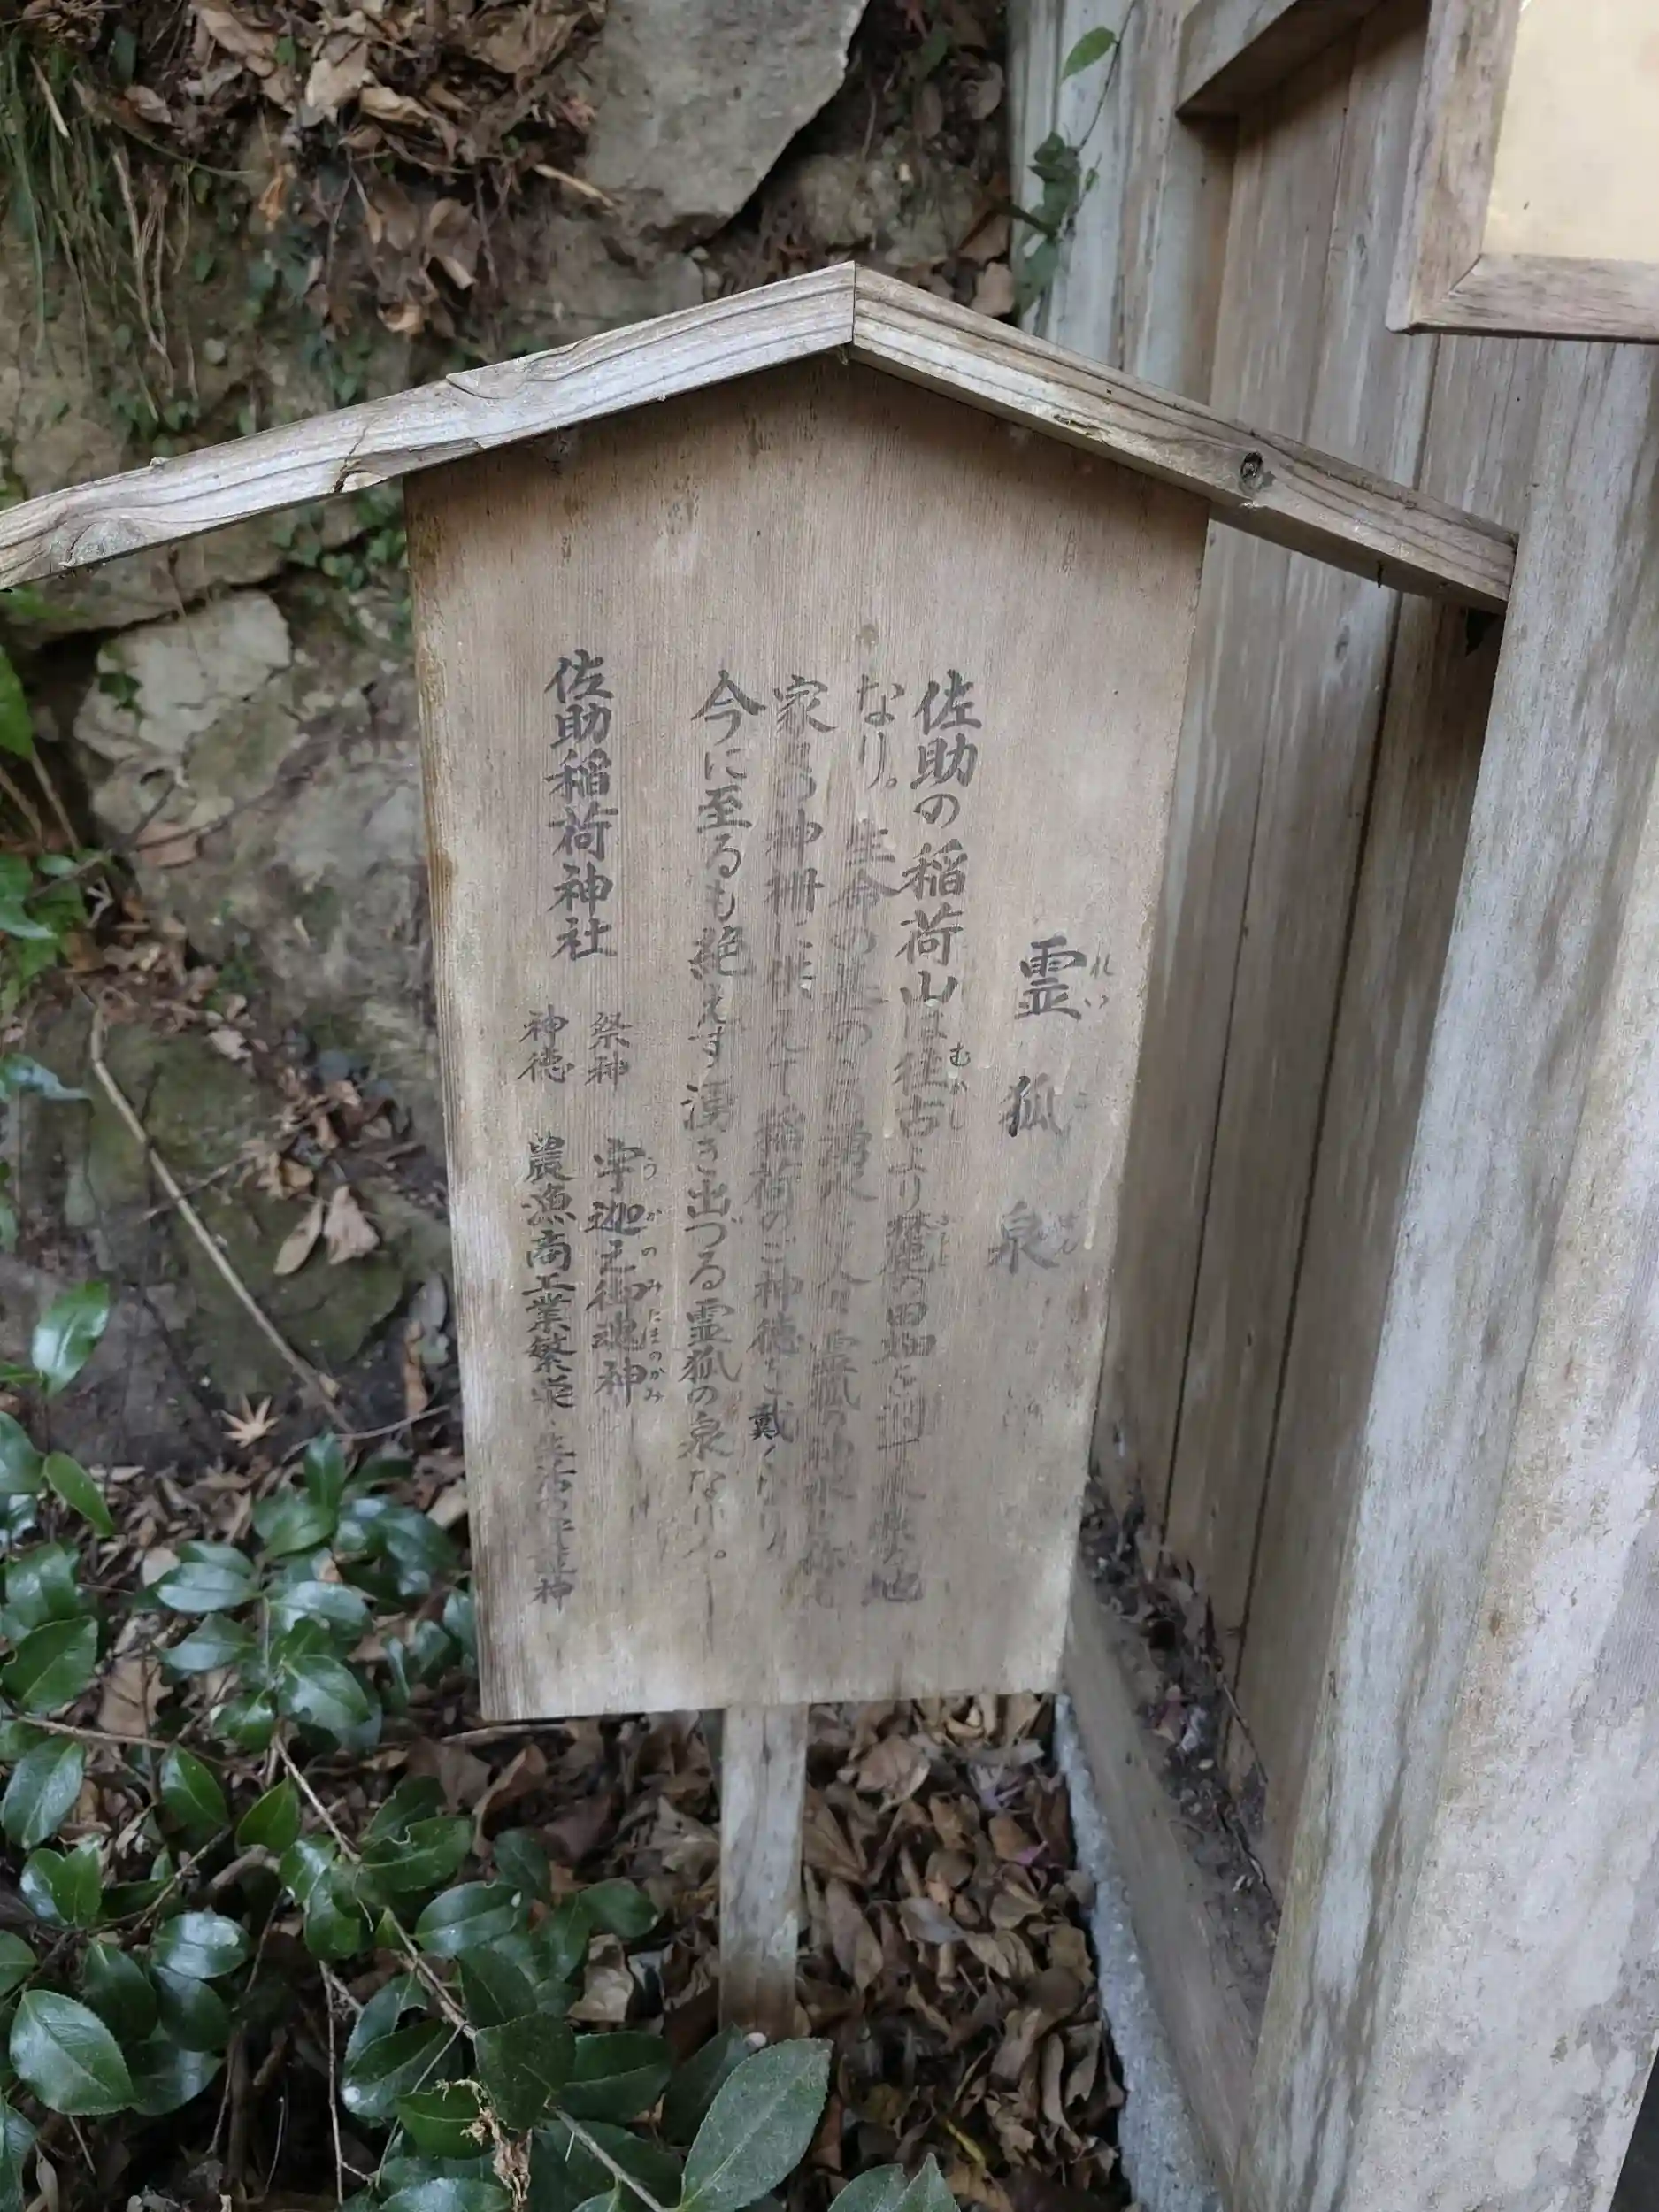 霊狐泉
佐助の稲荷山は往古より麓の田畑を潤す水 地
なり。生命の基の 湧水 人々霊狐の神水と称え
家々の神棚に供えて稲荷のご神徳を戴くなり
今に至るも絶えず湧き出づる霊狐の泉なり。
佐助稲荷神社
祭神 宇迦之御魂神
神徳 農漁商工業繁栄・生活の守護神